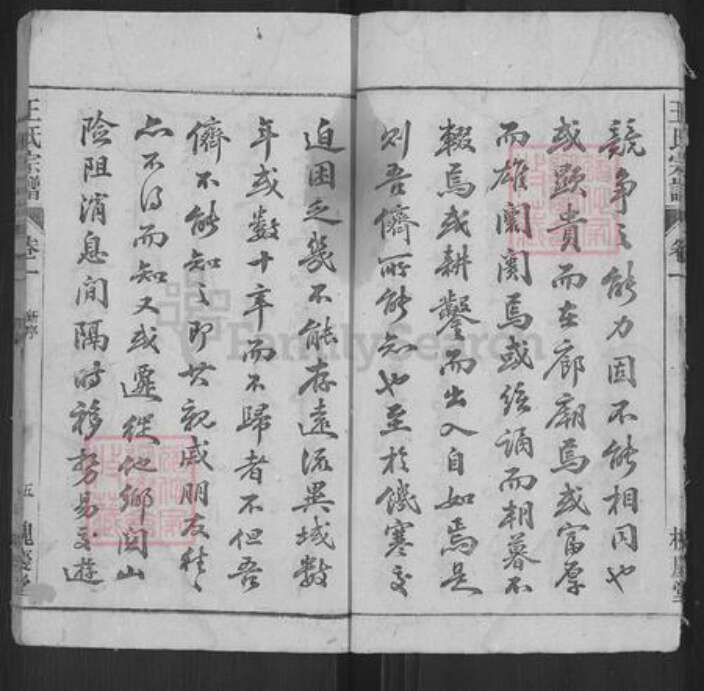 競爭之能力固不能相同也
或顯貴而在廊廟焉或富厚
而雄闤闠焉或絃誦而朝暮不
輟焉或耕鑿而出入自如焉是
則吾儕所能知也至於饑寒交
迫困乏幾不能存遠流異域數
年或數十年而不歸者不但吾
儕不能知之即其親戚朋友往々
亦不得而知又或遷徙他鄉關山
險阻消息間隔時移勢易交遊
王氏宗譜
卷一
王氏宗譜
卷一
五
槐慶堂
FamilySearch